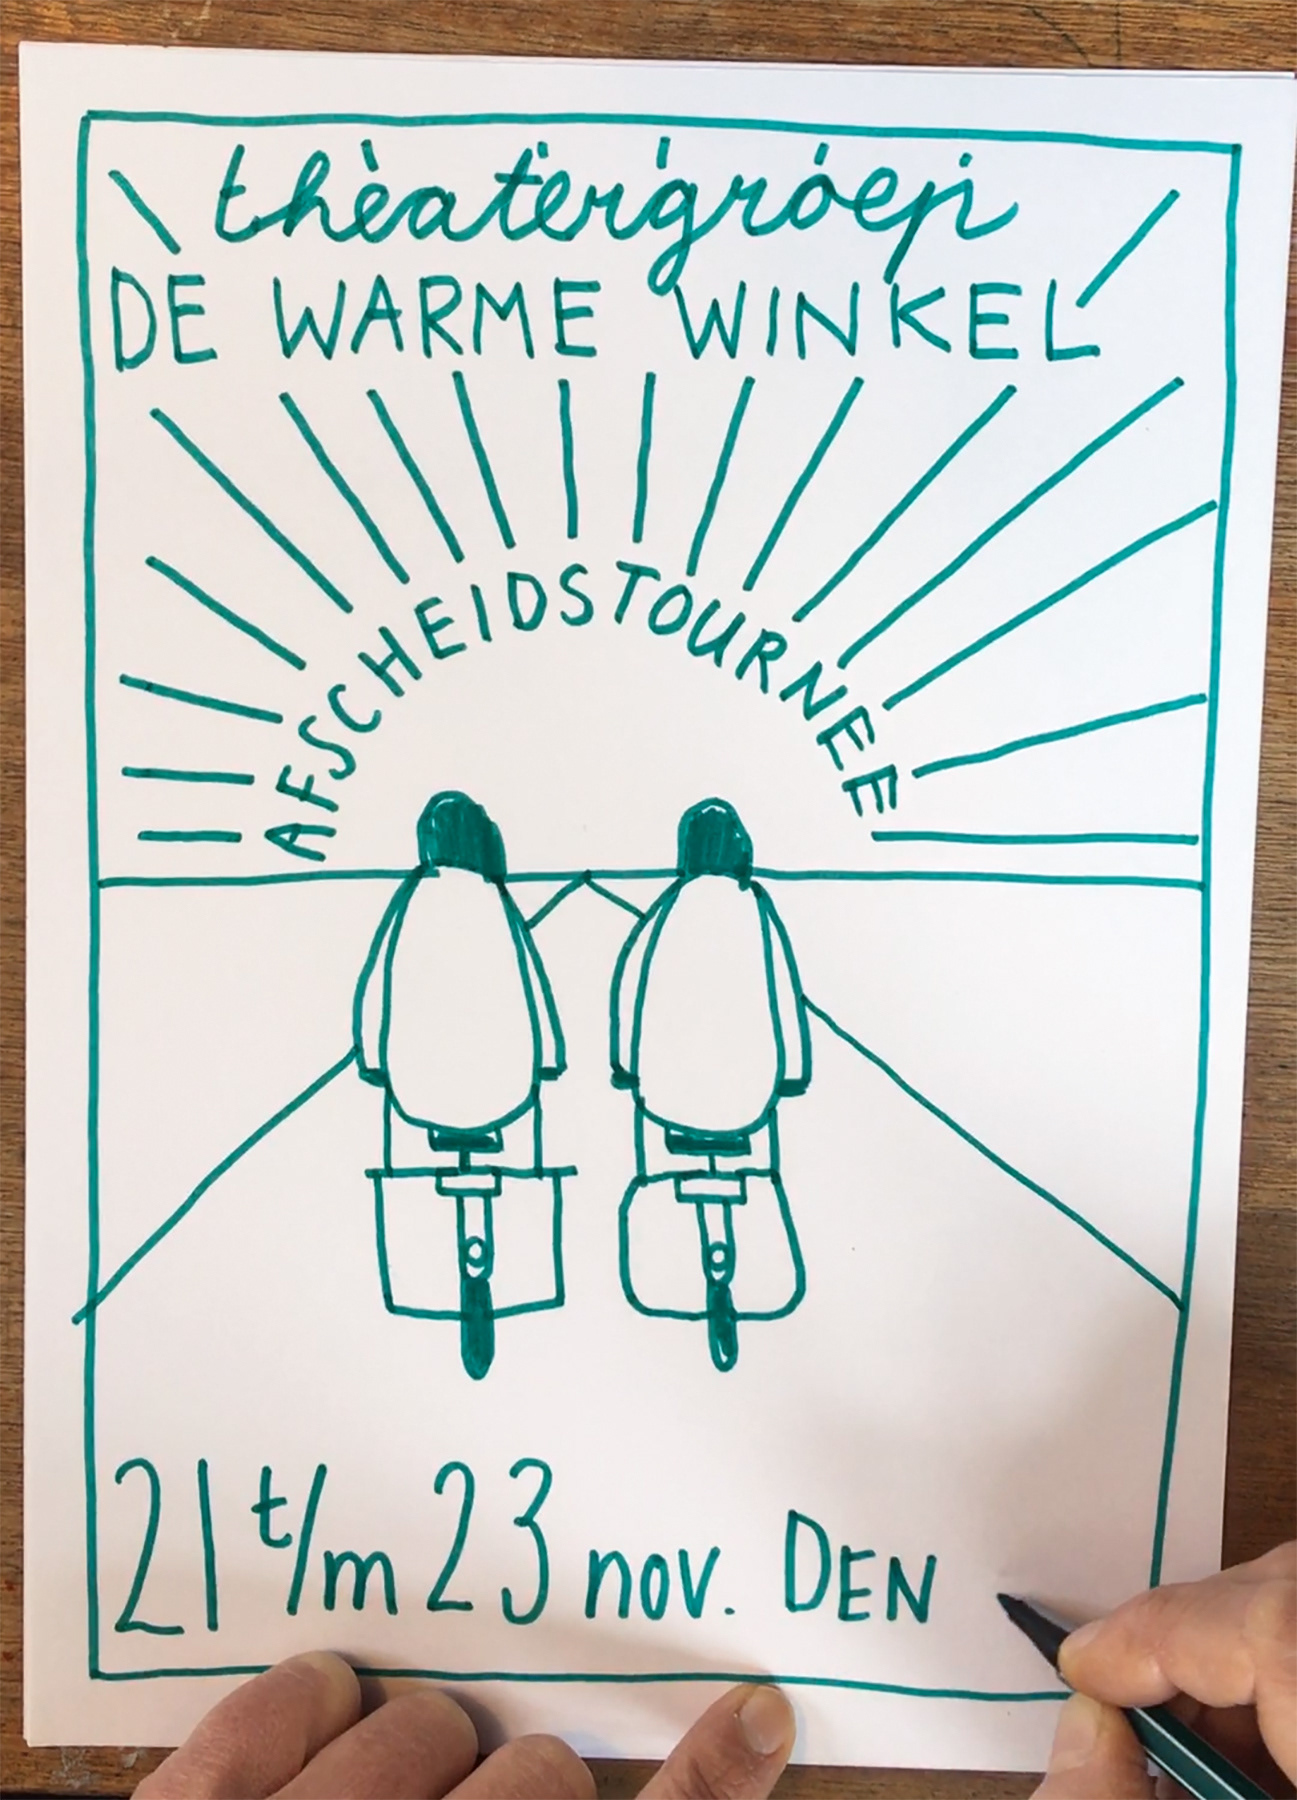 theatergroep
DE WARME WINKEL
AFSCHEIDSTOURNEE
21 t/m 23 nov. DEN